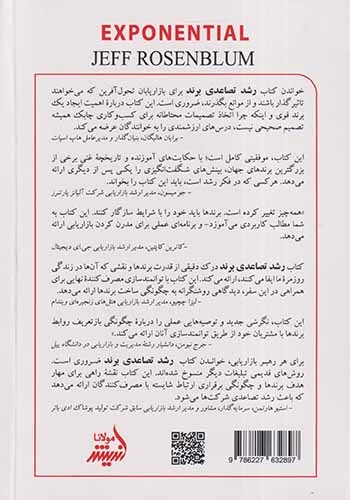 EXPONENTIAL
JEFF ROSENBLUM
خواندن کتاب رشد تصاعدی برند برای بازاریابان تحول‌آفرین که می‌خواهند
تاثیرگذار باشند و از موانع بگذرند، ضروری است. این کتاب دربارهٔ اهمیت ایجاد یک
برند قوی و اینکه چرا اتخاذ تصمیمات محتاطانه برای کسب‌وکاری چابک همیشه
تصمیم صحیحی نیست، درس‌های ارزشمندی را به خوانندگان عرضه می‌کند.
- برایان هالیگان، بنیان‌گذار و مدیرعامل هاب اسپات
این کتاب، موفقیتی کامل است؛ با حکایت‌های آموزنده و تاریخچهٔ غنی برخی از
بزرگترین برندهای جهان، بینش‌های شگفت‌انگیزی را یکی پس از دیگری ارائه
می‌دهد. هرکسی که در فکر رشد است، باید این کتاب را بخواند.
- جو میسون، مدیر ارشد بازاریابی شرکت آلیانز پارتنرز
«همه‌چیز تغییر کرده است. برندها باید خود را با شرایط سازگار کنند. این کتاب به
شما مطالب کاربردی می‌آموزد- و برنامه‌ای عملی برای مدرن کردن بازاریابی ارائه
می‌دهد.
-کاترین کاپلین، مدیر ارشد بازاریابی جی‌ای دیجیتال
کتاب رشد تصاعدی برند درک دقیقی از قدرت برندها و نقشی که آن‌ها در زندگی
روزمرهٔ ما ایفا می‌کنند، ارائه می‌کند. این کتاب با توانمندسازی مصرف‌کنندهٔ نهایی برای
همراهی در این سفر، دیدگاهی روشنگرانه به چگونگی ساخت برندها ارائه می‌دهد.
- لیزا چچیو، مدیر ارشد بازاریابی هتل‌های زنجیره‌ای ویندام
این کتاب، نگرشی جدید و توصیه‌هایی عملی را دربارهٔ چگونگی بازتعریف روابط
برندها با مشتریان خود از طریق توانمندسازی آنان ارائه می‌دهد.
- جرج نیومن، دانشیار رشتهٔ مدیریت و بازاریابی در دانشگاه ییل
برای هر رهبر بازاریابی، خواندن کتاب رشد تصاعدی برند ضروری است.
روش‌های قدیمی تبلیغات دیگر منسوخ شده‌اند. این کتاب نقشهٔ راهی برای مهار
هدف برندها و چگونگی برقراری ارتباط شایسته با مصرف‌کنندگان ارائه می‌دهد
که باعث رشد تصاعدی شرکت‌ها می‌شود.
- استیو هارتمن، سرمایه‌گذار، مشاور و مدیر ارشد بازاریابی سابق شرکت تولید پوشاک ادی باثر
مولانا
9 786227 632897